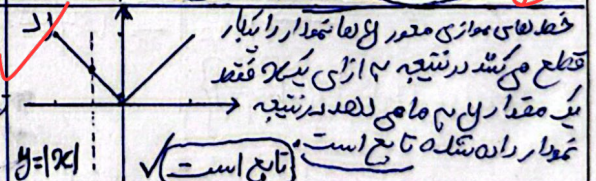 ل) خط‌های موازی محور yها نمودار را یکبار
قطع می‌کنند در نتیجه به ازای یک x فقط
یک مقدار y به ما می‌دهد در نتیجه
نمودار داده شده تابع است.
y=|x|
√ تابع است